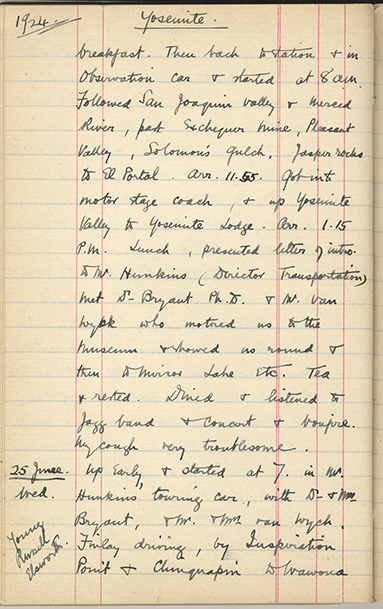 1924. Yosemite.
breakfast. Then back to station & in
Observation car & started at 8 a.m.
Followed San Joaquin Valley & Merced
River, past Exchequer Mine, Pleasant
Valley, Solomon's Gulch, Jasper rocks
to El Portal. Arr. 11.55. Got into
motor stage coach, & up Yosemite
Valley to Yosemite Lodge. Arr. 1.15
P.M. Lunch, presented letter of intro.
to Mr. Hunkins (Director Transportation)
Met Dr Bryant Ph.D. & Mr. Van
Wyck who motored us to the
Museum & showed us round &
then to Mirror Lake Etc. Tea
& rested. Dined & listened to
Jazz band & concert & bonfire.
My cough very troublesome.
25 June. Up Early, & started at 7. in Mr.
Wed. Hunkins touring car, with Dr & Mrs
Bryant, & Mr. & Mrs van Wych.
Young Russell Elsworth
Finlay driving, by Inspiration
Point & Chinquapin to Wawona